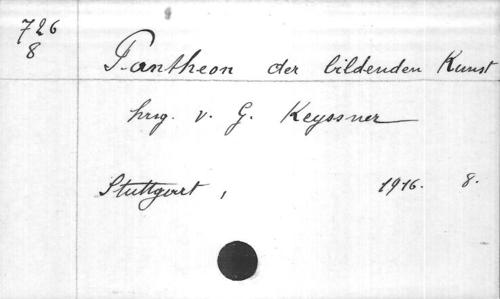 726
8
Pantheon der bildenden Kunst
hrsg. v. G. Keyssner
Stuttgart, 1916. 8.